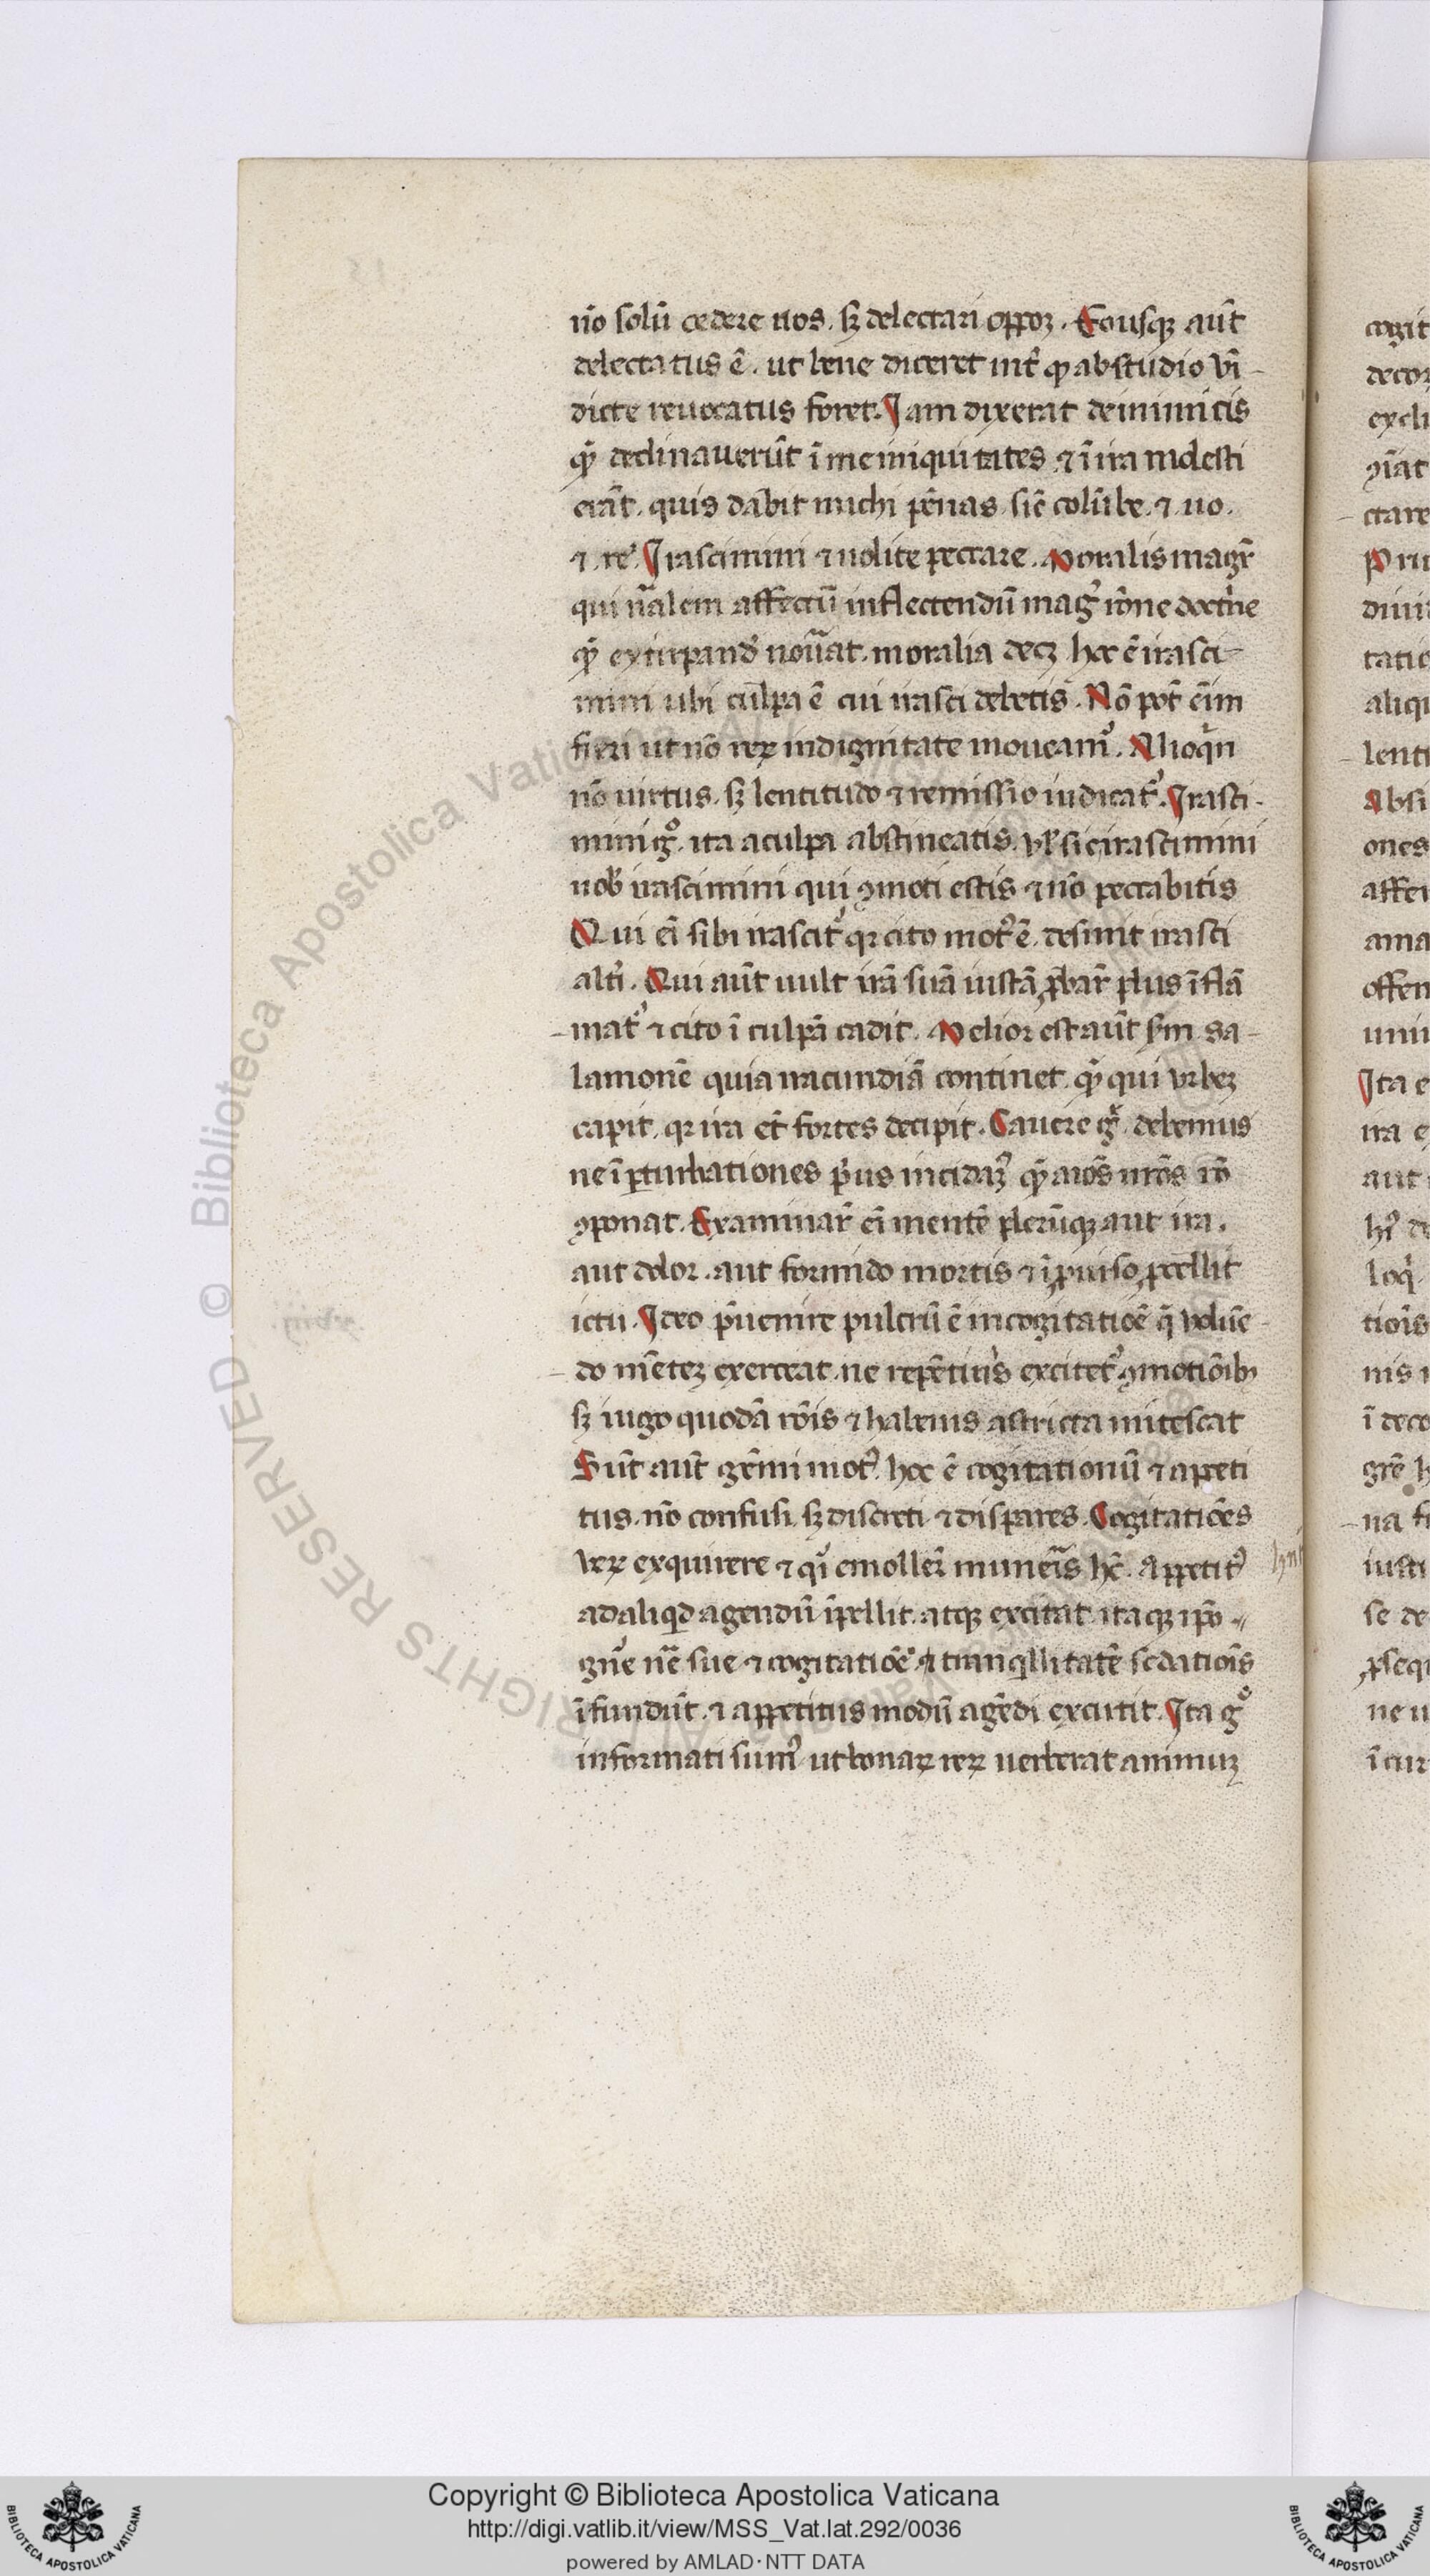 nō solū cedere nos. sꝫ delectari oppoꝛꝫ. Eousqꝫ aūt
delectatus ē. ut bene diceret int̄ qꝫ ab studio vī-
dicte reuocatus foret. Iam dixerat de inimicis
qꝫ declinauerūt ī me iniquitates ⁊ ī ira molesti
erāt. quis dabit michi pēnas. sic̄ colūbe. ⁊ uo.
⁊ re. Irascimini ⁊ nolite peccare. Moralis magr̄
qui nālem affectū inflectendū mag̉ rōne doctrine
qꝫ extirpand̉ nouāat. moralia docꝫ hoc ē irasci-
mini ubi culpa ē cui irasci debetis. Nō pōt eīm
fieri ut nō reꝝ indignitate moueam᷒. Alioqin
nō uirtus. sꝫ lentitudo ⁊ remissio iudicat᷒. Irasci-
mini gͦ. ita a culpa abstineatis. vl̓ sic irascimini
nob̓ irascimini qui ꝯmoti estis ⁊ nō peccabitis
Qui eī sibi irascit᷒ qꝛ cito mot᷒ ē. desinit irasci
alt̓i. Qui aūt uult irā suā iustā ꝓbar̄ plus īflā
mat᷒ ⁊ cito ī culpā cadit. Melior est aūt sm̄ sa-
lamonē quia iracundiā continet. qꝫ qui vrbeꝫ
capit. qꝛ ira et̄ fortes decipit. Cauere gͦ debemus
ne ī ꝑturbationes p̓us incidaꝫ᷒ qꝫ aīos nrōs rō
ꝯponat. Exanimar̄ eī mentē pleruqꝫ aut ira.
aut dolor. aut formido mortis ⁊ īꝓuiso ꝑcellit
ictu. Ideo p̄uenire pulcrū ē in cogitatiōē q̄ voluē
do mēteꝫ exerceat. ne repētinis excitet᷒ ꝯmotiōibꝫ
sꝫ iugo quodā rōis ⁊ habenis astricta mitescat
Sūt aūt gēmi mot᷒. hoc ē cogitationū ⁊ apeti
tus. nō confusi sꝫ discreti ⁊ dispares. Cogitatiōes
veꝝ exquirere ⁊ qi emoller̄ muneīs hc̄. Appetit᷒
ad aliqd agendū īpellit. atqꝫ excitat. itaqꝫ ipō
gn̄e nē sue ⁊ cogitatiōē ⁊ tranqllitatē sedatiōis
īfundūt. ⁊ appetitus modū agēdi excutit. Ita gͦ
informati sum᷒ ut bonaꝝ reꝝ uerberat animuꝫ
Copyright © Biblioteca Apostolica Vaticana
http://digi.vatlib.it/view/MSS_Vat.lat.292/0036
powered by AMLAD·NTT DATA